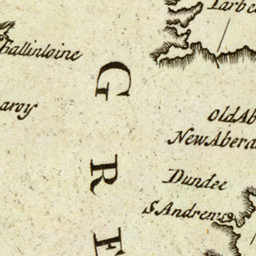 Tarbe
Ballinloine
aroy
Old Ab
New Aberd
Dundee
S. Andrews
G
R
E